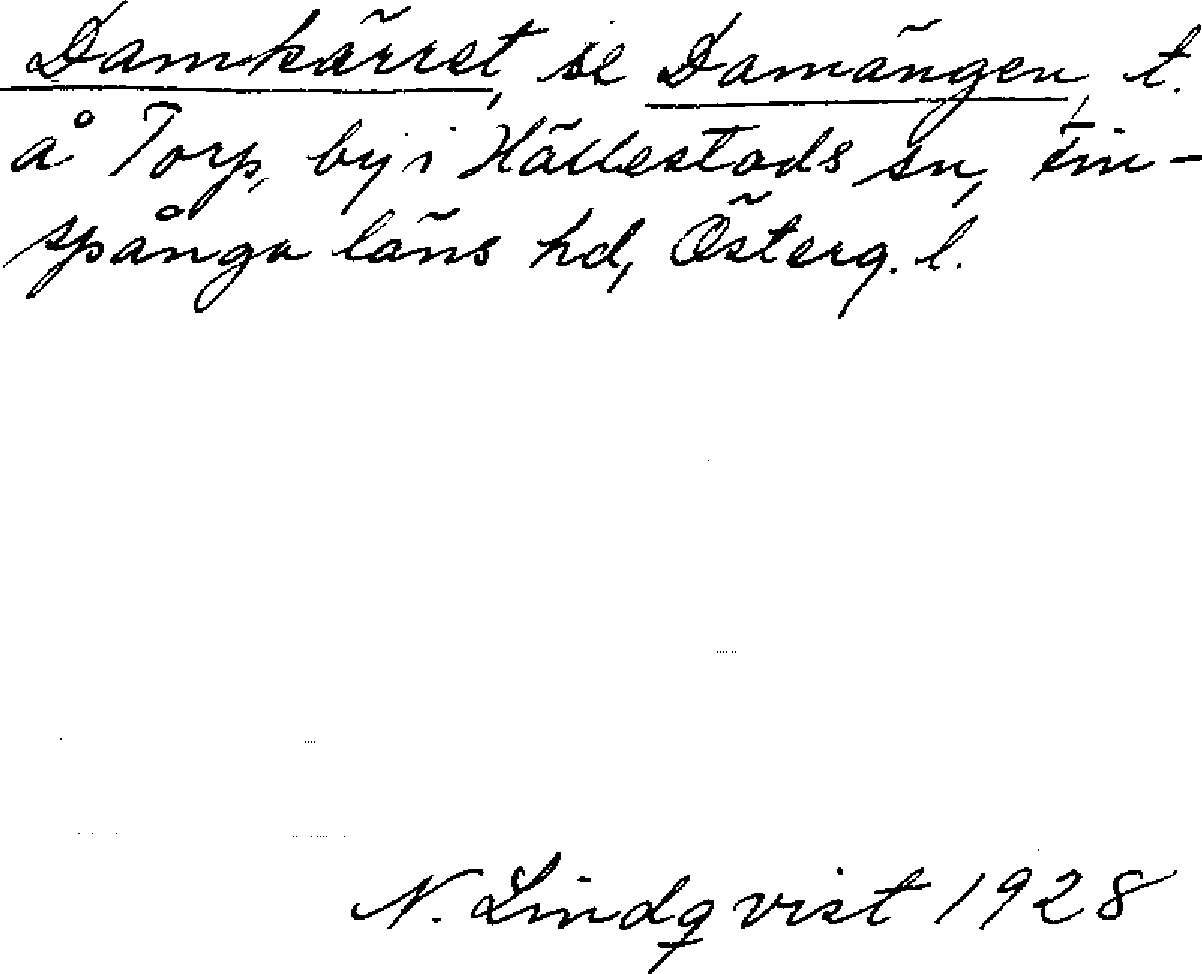 Damkärret, se Damängen, t.
å Torp, by i Hällestads sn, Fin-
spånga läns hd, Österg. l.
N. Lindqvist 1928